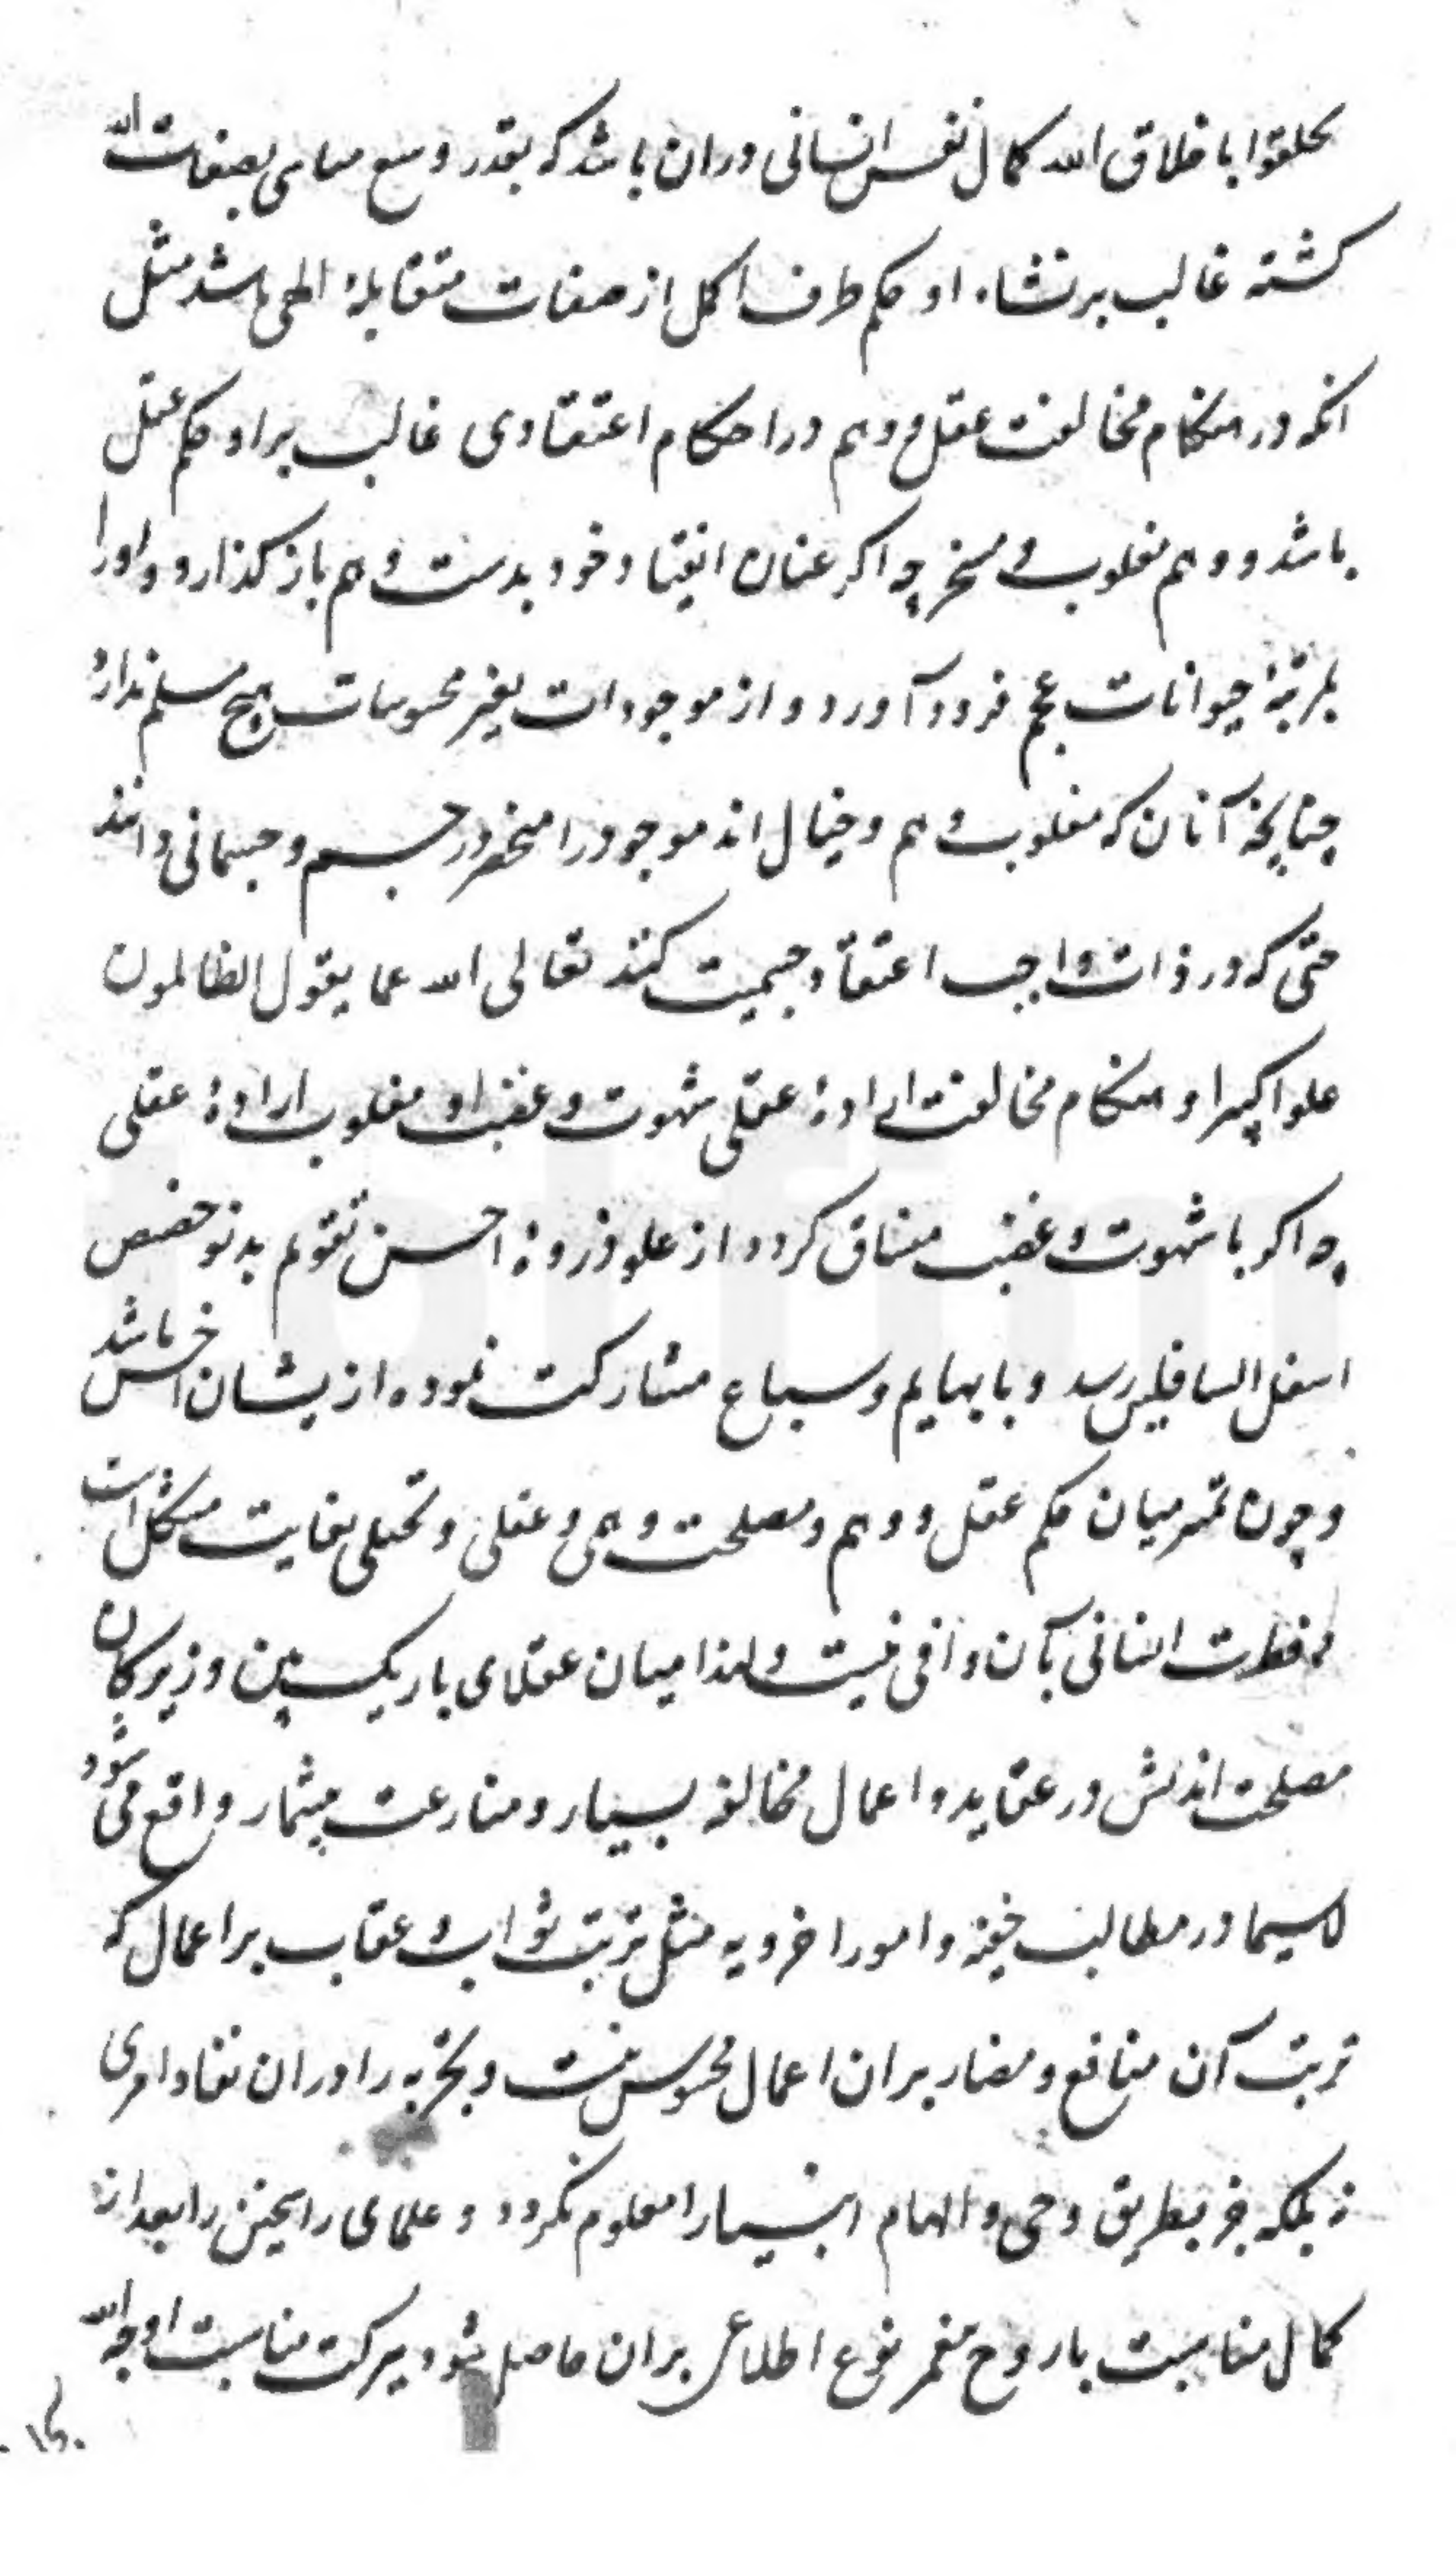 تخلقوا باخلاق الله کمال نفس انسانی دران باشد که بقدر وسع متناسی بصفات الله
کشته غالب بر نشاء او حکم طرف اکمل از صفات متقابلهٔ الهی باشد مثل
انکه در هنکام مخالفت عقل و وهم در احکام اعتقادی غالب بر او حکم عقل
باشد و وهم مغلوب و مسخر چه اکر عنان انقیاد خود بدست وهم باز کذارد و او را
بمرتبهٔ حیوانات عجم فرود آورد و از موجودات بغیر محسوسات هیچ مسلم ندارد
چنانچه آنان که مغلوب وهم و خیال اند موجود را منحصر در جسم و جسمانی دانند
حتی که در ذات واجب اعتقاد جسمیت کنند تعالی الله عما یقول الظالمون
علوا کبیرا و هنکام مخالفت ارادهٔ عقلی شهوت و غضب او مغلوب ارادهٔ عقلی
چه اکر با شهوت و غضب منساق کردد از علو ذروهٔ احسن تقویم بدنو حضیض
اسفل السافلین رسد و با بهایم و سباع مشارکت نموده از یشان اخس باشد
و چون تمیز میان حکم عقل و وهم و مصلحت وهمی و عقلی و تخیلی بغایت مشکل است
و فطرت انسانی بآن وافی نیست و لهذا میان عقلای باریک بین و زیرکان
مصلحت اندیش در عقاید و اعمال مخالفه بسیار و منازعت بیشمار واقع می شود
لاسیما در مطالب خفیه و امور اخرویه مثل ترتب ثواب و عقاب بر اعمال که
ترتب آن منافع و مضار بران اعمال محسوس نیست و تجربه را دران نفاد امری
نه بلکه جز بطریق وحی و الهام انبیا را معلوم نکردد و علمای راسخین را بعد از
کمال مناسبت با روح پیغمبر نوع اطلاعی بران حاصل شود ببرکت مناسبت او چه الله